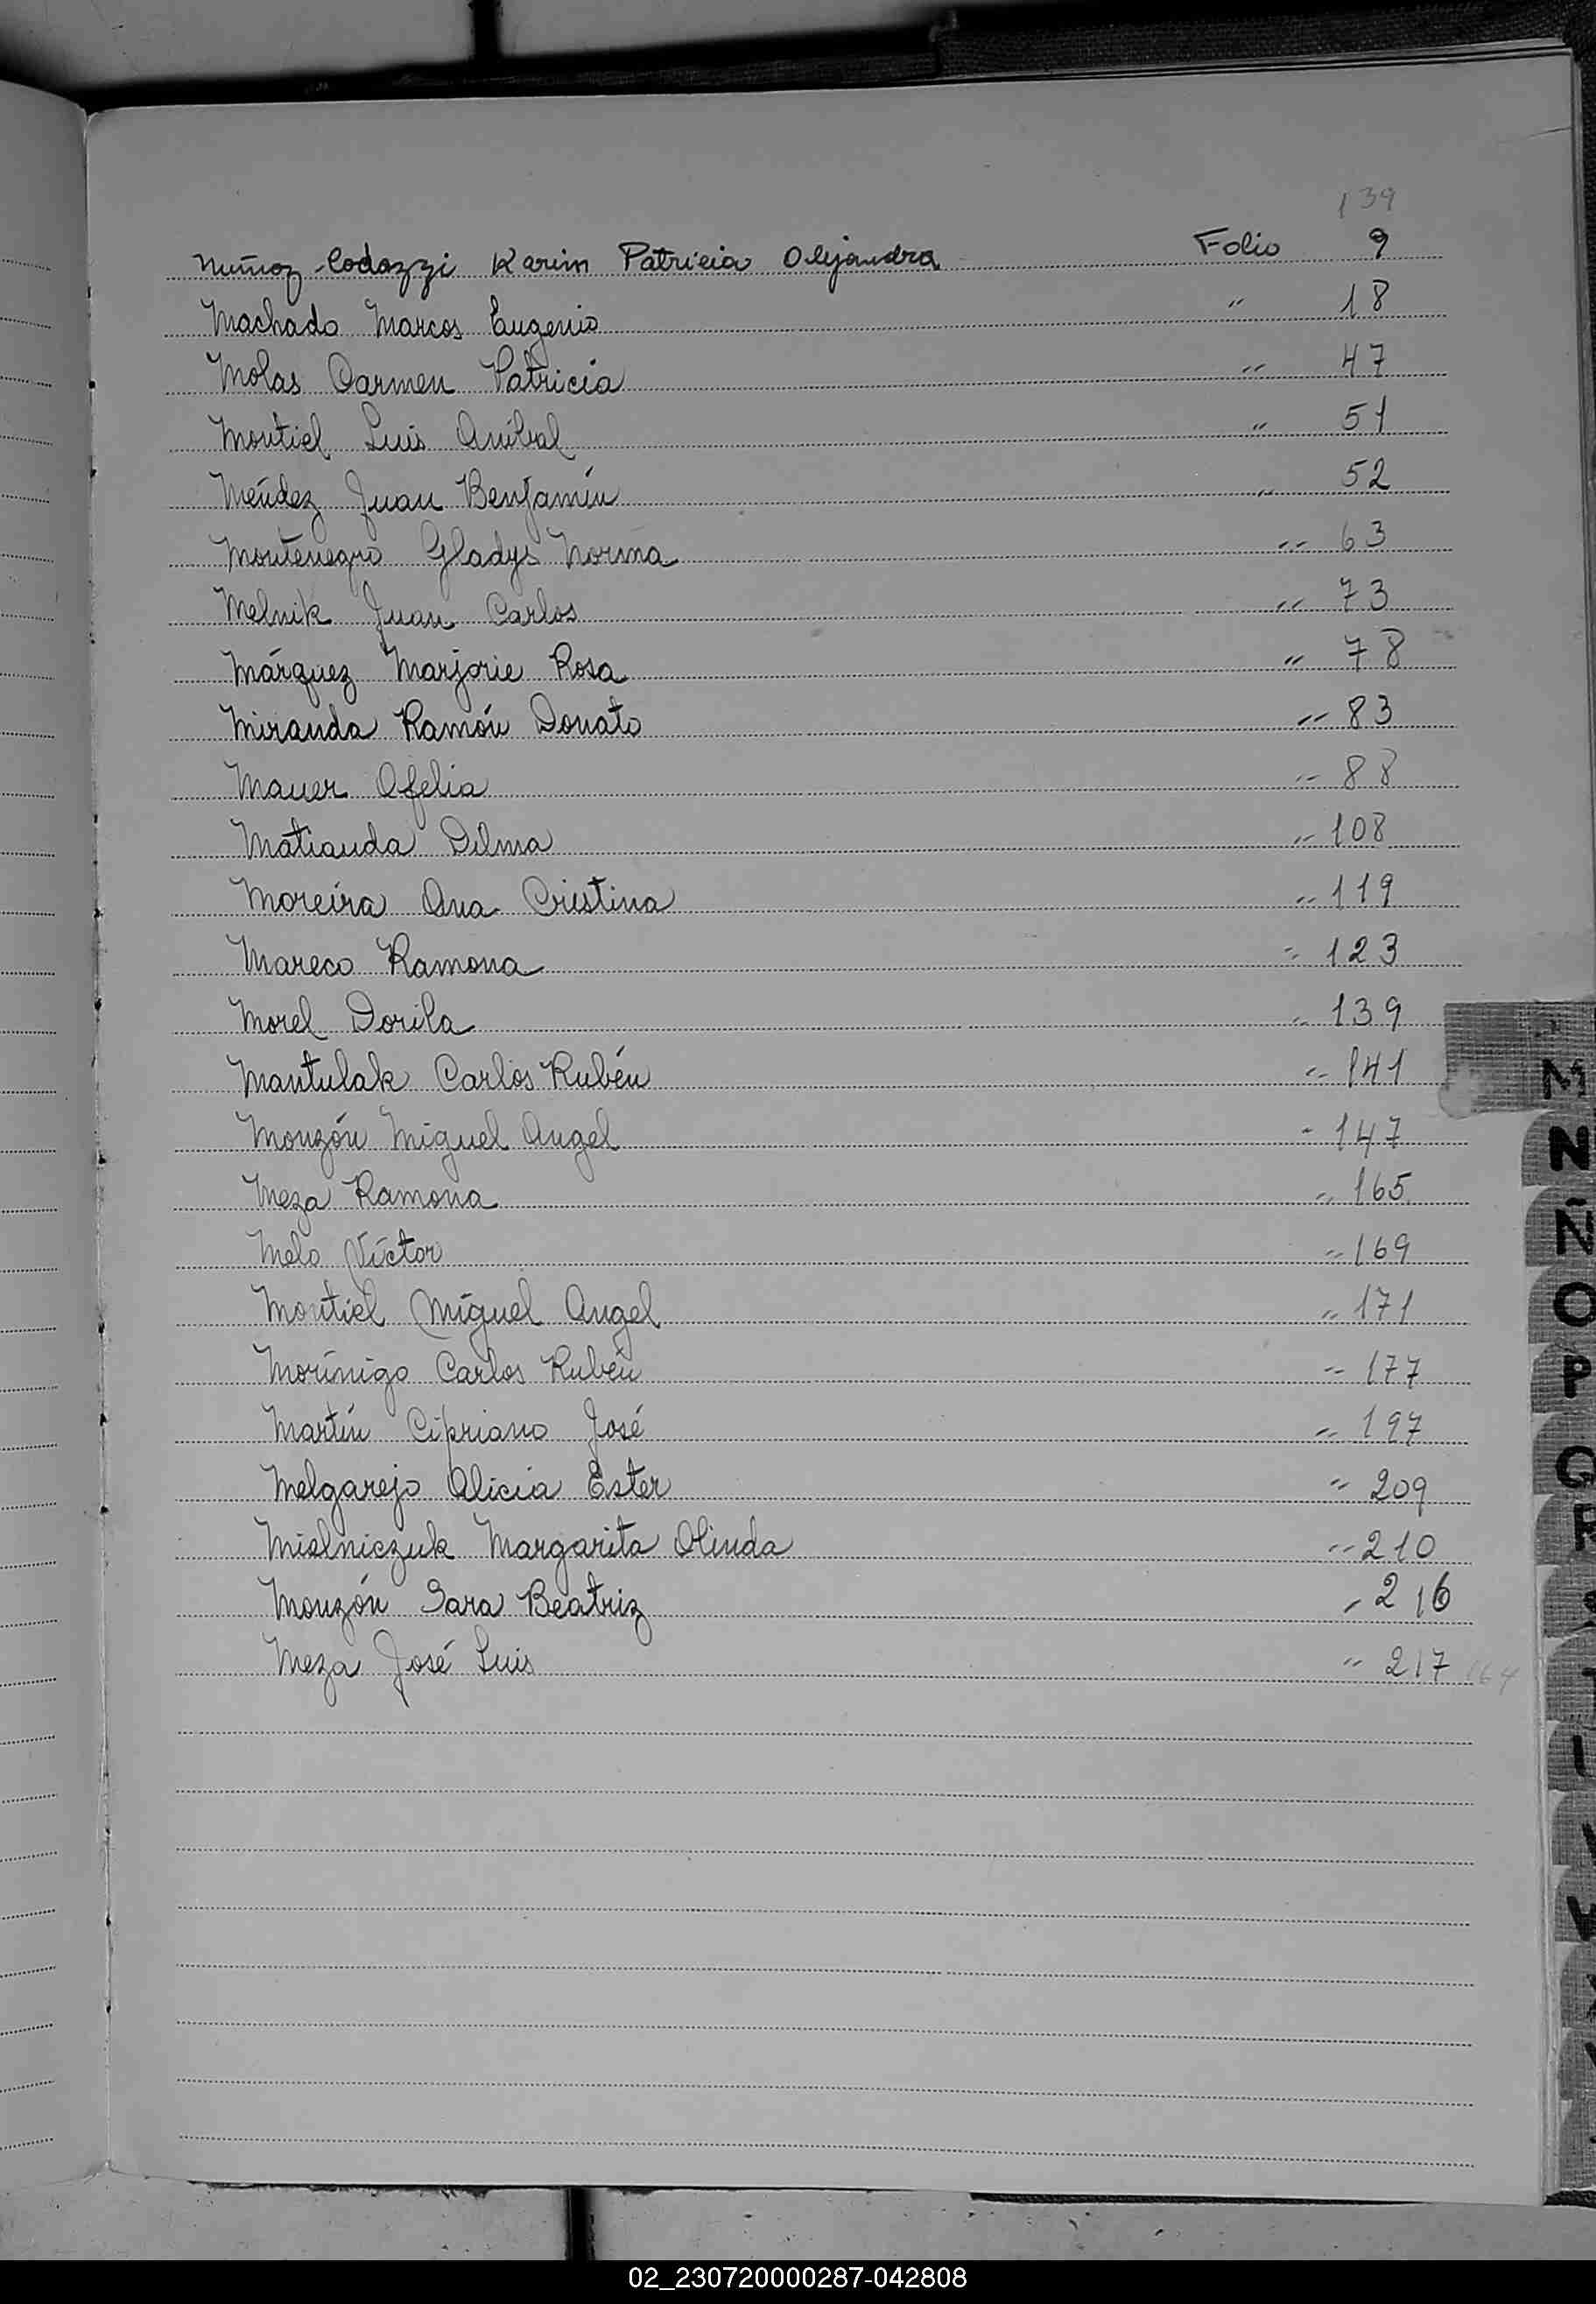 139
Muñoz Codazzi Karim Patricia Alejandra Folio 9
Machado Marcos Eugenio " 18
Molas Carmen Patricia " 47
Montiel Luis Aníbal " 51
Méndez Juan Benjamín " 52
Montenegro Gladys Norma " 63
Melnik Juan Carlos " 73
Márquez Marjorie Rosa " 78
Miranda Ramón Donato " 83
Mauer Ofelia " 88
Matiauda Dilma " 108
Moreira Ana Cristina " 119
Mareco Ramona " 123
Morel Dorila " 139
Mantulak Carlos Rubén " 141
Monzón Miguel Angel " 147
Meza Ramona " 165
Melo Víctor " 169
Montiel Miguel Angel " 171
Morínigo Carlos Rubén " 177
Martín Cipriano José " 197
Melgarejo Alicia Ester " 209
Mielniczuk Margarita Olinda " 210
Monzón Sara Beatriz " 216
Meza José Luis " 217
M
N
Ñ
O
P
Q
R
02_230720000287-042808